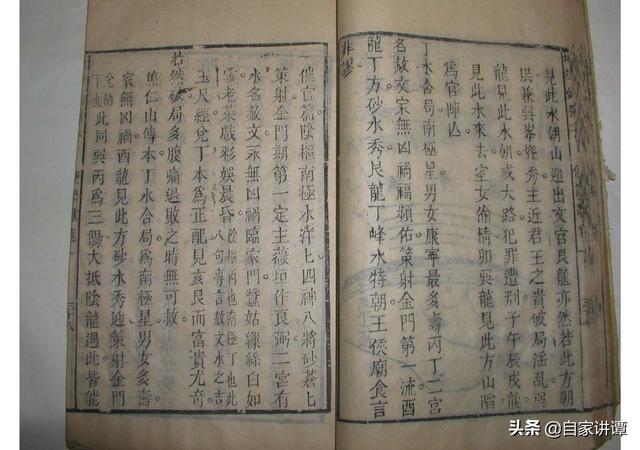 見此水朝山迎出文官艮龍亦然若此方朝
拱兼巽峯秀主近君王之貴破局淫亂巽
龍見此水朝或大路犯罪遭刑子午辰戌龍
見此水來去室女偷情卯巽龍見此方山
為官陣亡
丁水合局南極星男女康寧最多壽丙丁二宮
名赦文家無凶禍福頻佑策射金門第一流酉
龍丁方砂水秀艮龍丁峰水特朝王侯廟食言
非謬
催官篇陰樞南極水洋上四神八將砂蒼上
策射金門期第一定主薇垣作良弼二宮有
水名赦文永無凶禍臨家門蠶姑繰絲白如
雪老萊戲彩娛晨昏
陰樞丙也南極丁也此
八句專言赦文水之吉
玉尺經兌丁本為正配見亥艮而富貴尤奇
若然破局多腹痛退敗之時無可救
焦仁山傳本丁水合局為南極星男女多壽
家無凶禍酉龍見此方砂水秀迎策射金門
兌納
丁也
此同巽丙為三陽大抵陰龍遇此皆能
头条 @自家讲谭